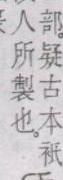 部。疑古本衹
人所製也。